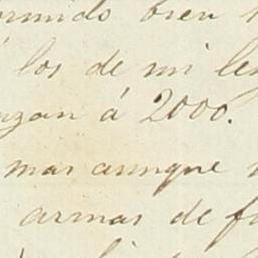 ormido bien
los de mi le
nzan á 2000.
mas aunque
armas de f